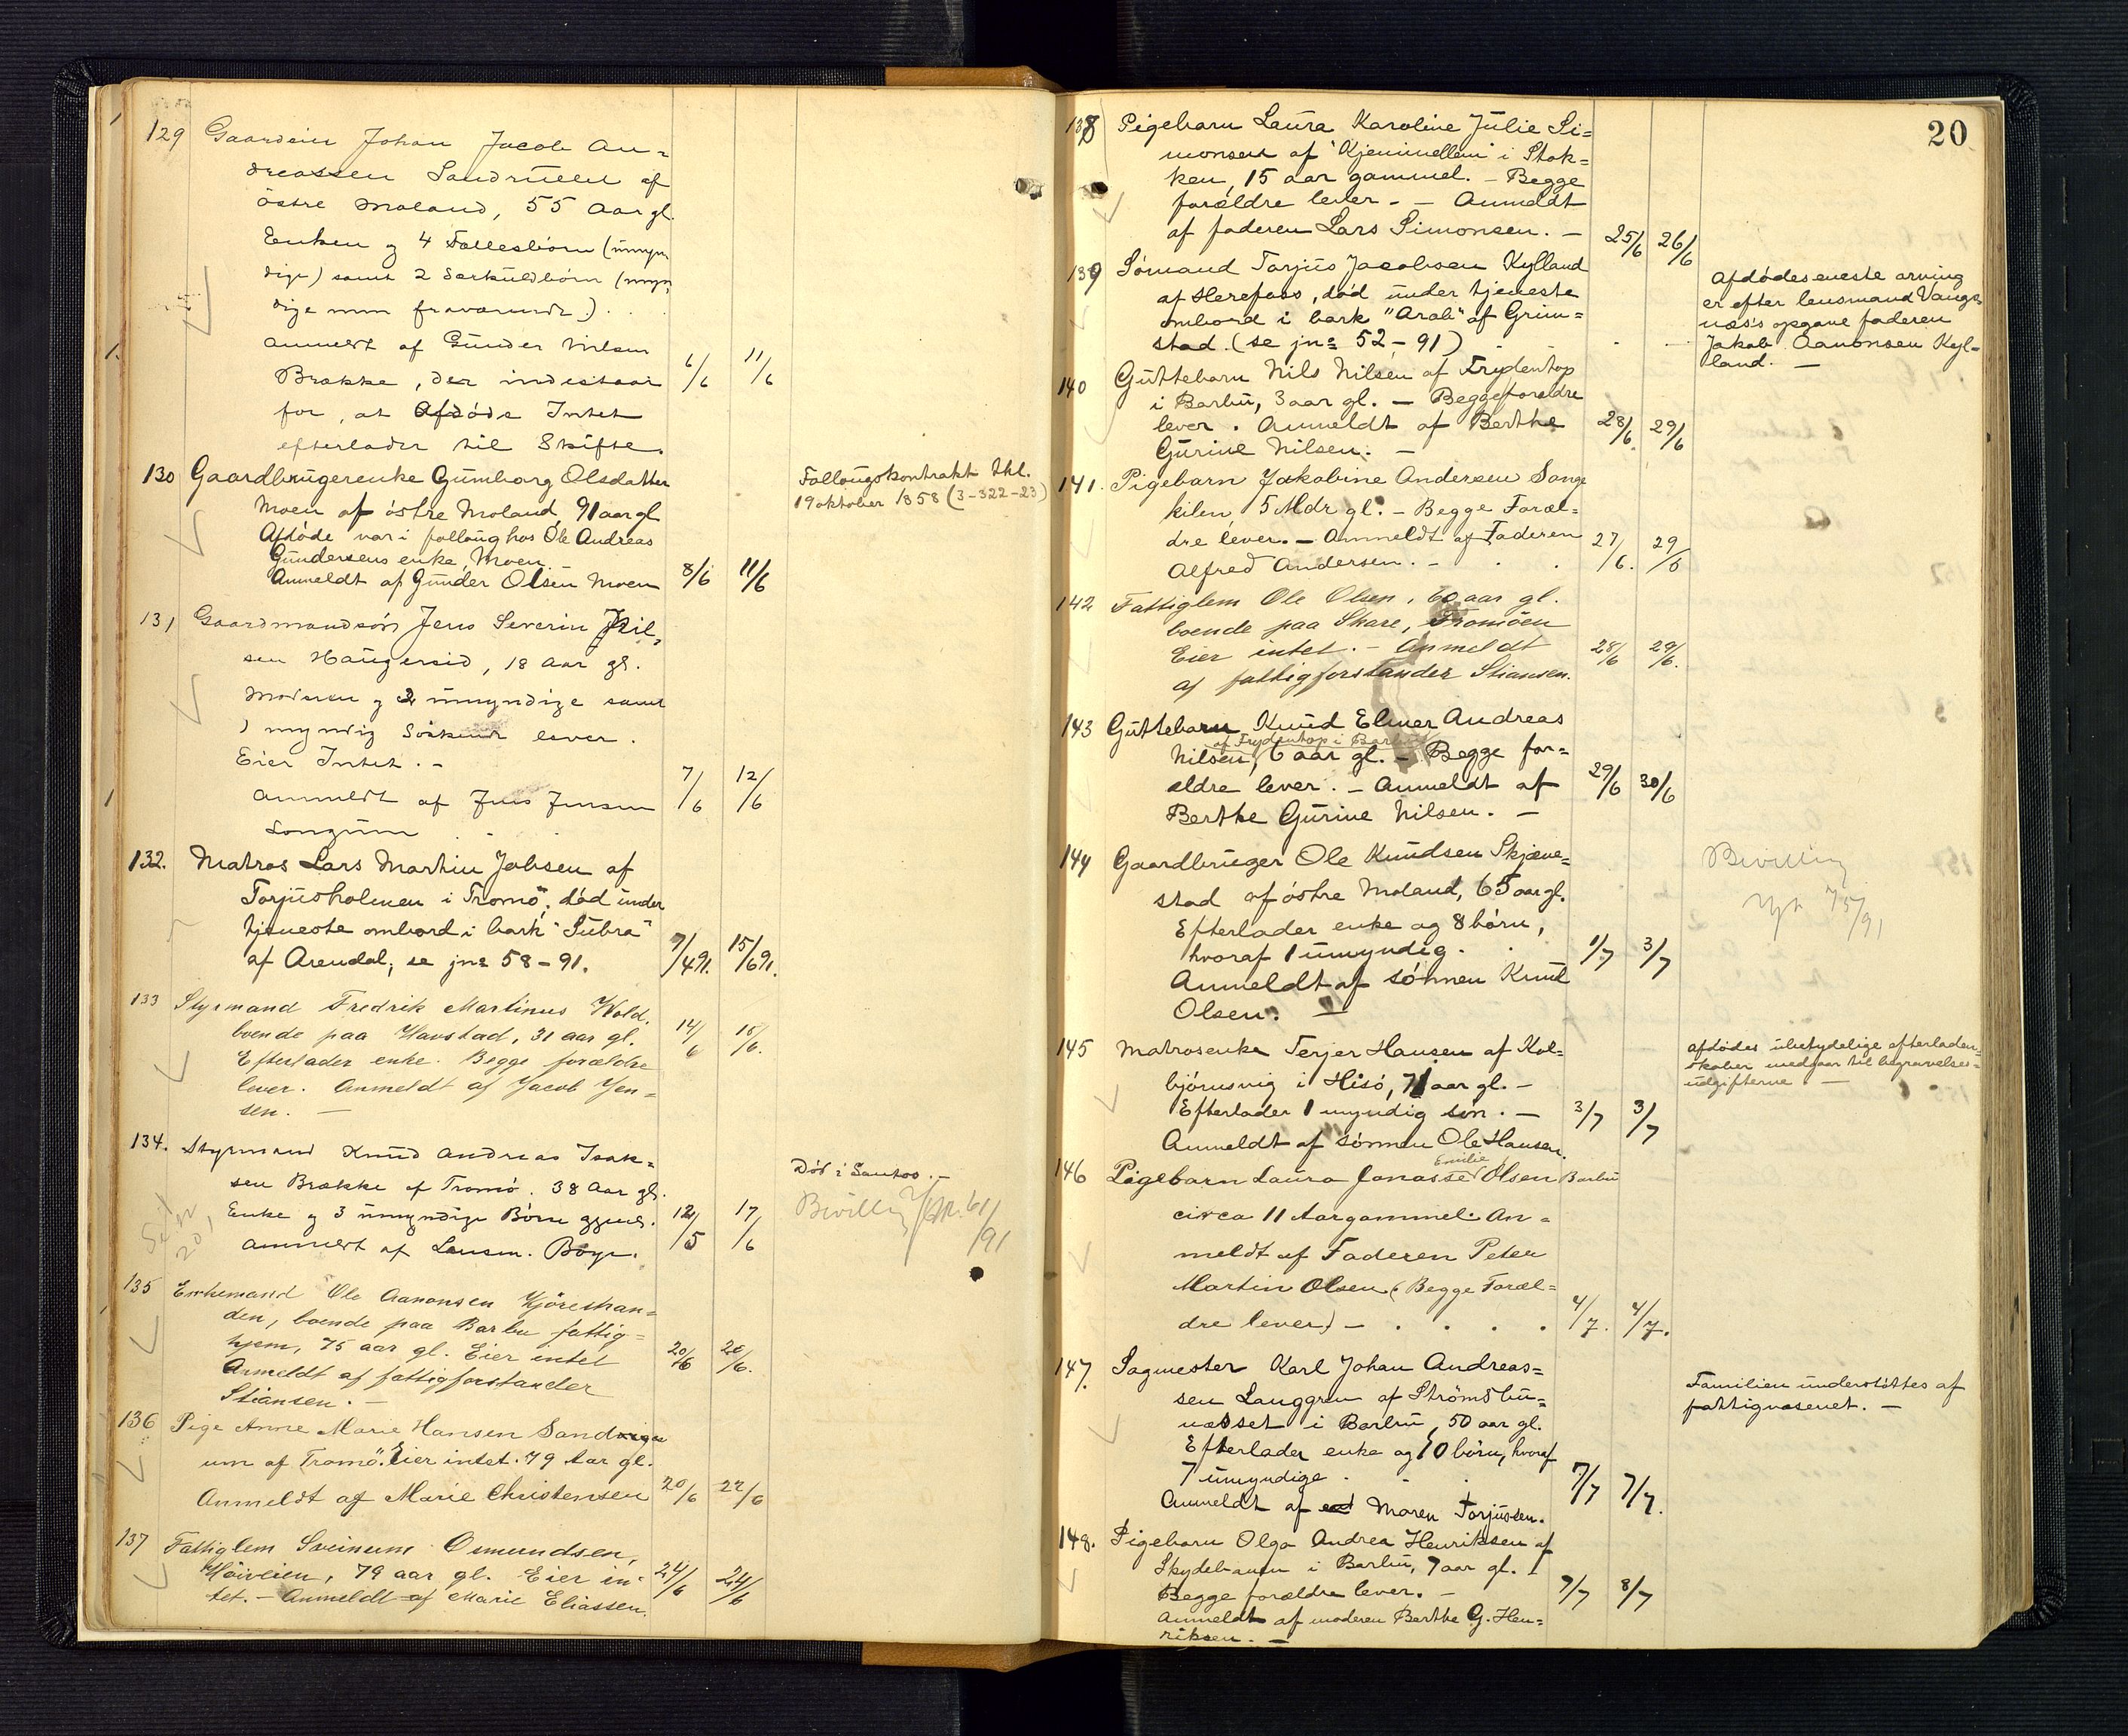 129 Gaardeier Johan Jacob An-
dreassen Sandruelen af
östre Moland, 55 Aar gl.
Enken og 4 Fællesbörn (umyn
dige) samt 2 Særkuldbörn (myn
dige men fraværende).
Anmeldt af Gunder Nilsen
Brække, der indestaar 6/6 11/6
for, at Afdöde Intet
efterlader til Skifte.
130 Gaardbrugerenke Gunborg Olsdatter
Moen af östre Moland, 91 aar gl
Afdöde var i follaug hos Ole Andreas
Gundersens enke, Moen.
Anmeldt af Gunder Olsen Moen 8/6 11/6
Follaugskontrakt thl.
19 oktober 1858 (3-322-23)
131 Gaardmandsön Jens Severin Nil,
sen Haugersid, 18 Aar gl.
Moderen og 2 umyndige samt
1 myndig Söskende lever.
Eier Intet. -
Anmeldt af Jens Jensen 7/6 12/6
Longum
132. Matros Lars Martin Jobsen af
Torjusholmen i Tromö, död under
tjeneste ombord i bark "Subra"
af Arendal, se jn= 58-91. 9/4 91. 15/6 91.
133 Styrmand Fredrik Martinus Wold,
boende paa Havstad, 31 aar gl. 14/6 15/6.
Efterlader enke. Begge forældre
lever. Anmeldt af Jacob Jen=
sen. -
134. Styrmand Knud Andreas Isak=
sen Brække af Tromö. 38 Aar gl.
Enke og 3 umyndige Börn
Anmeldt af Lensm. Böye. 12/5 17/6
Död i Santos. -
Bevilling 61/91
135 Enkemand Ole Aanonsen Kjörestran=
den, boende paa Barbu fattig=
hjem, 75 aar gl. Eier intet 20/6 20/6.
Anmeldt af fattigforstander
Stiansen. -
136 Pige Anne Marie Hansen Sandvigen
um af Tromö. Eier intet. 79 Aar gl.
Anmeldt af Marie Christensen 20/6 22/6
137 Fattiglem Sveinum Osmundsen,
Höiveien, 79 aar gl. Eier in= 24/6 24/6
tet. - Anmeldt af Marie Eliassen.
20
138 Pigebarn Laura Karoline Julie Si=
monsen af "Kjenimellem" i Stok=
ken, 15 aar gammel. - Begge
forældre lever. - Anmeldt
af faderen Lars Simonsen. - 25/6 26/6
139 Sömand Torjus Jacobsen Kylland
af Herefoss, död under tjeneste
ombord i bark "Arab" af Grim=
stad. (se jn= 52-91)
Afdödes eneste arving
er efter lensmand Vangs
næs's opgave faderen
Jakob Aanonsen Kyl-
land. -
140 Guttebarn Nils Nilsen af Frydentop
i Barbu, 3 aar gl. - Begge forældre
lever. Anmeldt af Berthe 28/6 29/6
Gurine Nilsen. -
141. Pigebarn Jakobine Andersen Songe
kilen 5 Mdr gl. - Begge Foræl=
dre lever. - Anmeldt af Faderen 27/6. 29/6
Alfred Andersen. -
142 Fattiglem Ole Olsen, 60 aar gl.
boende paa Skare, Tromöen
Eier intet. - Anmeldt 28/6 29/6.
af fattigforstander Stiansen.
143 Guttebarn Knud Elmer Andreas
af Frydentop i Barbu
Nilsen, 6 aar gl. - Begge for=
ældre lever. - Anmeldt af 29/6 30/6
Berthe Gurine Nilsen. -
144 Gaardbruger Ole Knudsen Skjæve=
stad af östre Moland, 65 aar gl.
Efterlader enke og 8 börn,
hvoraf 1 umyndig. 1/7 3/7
Anmeldt af sönnen Knud
Olsen. -
Bevilling
75/91
145 Matrosenke Terjer Hansen af Kol=
björnsvig i Hisö, 71 aar gl. -
Efterlader 1 myndig sön. - 3/7 3/7
Anmeldt af sönnen Ole Hansen.
afdödes ubetydelige efterladen=
skaber medgaar til begravelses=
udgifterne -
Emilie
146 Pigebarn Laura Jonasse Olsen Barbu
circa 11 Aar gammel. An=
meldt af Faderen Peter
Martin Olsen (Begge Foræl=
dre lever) - 4/7. 4/7.
147. Sagmester Karl Johan Andreas=
sen Langgren af Strömsbu=
næsset i Barbu, 50 aar gl.
Efterlader enke og 10 börn, hvoraf
7 umyndige. 7/7 7/7.
Anmeldt af Maren Torjussen.
Familien understöttes af
fattigvæsenet. -
148. Pigebarn Olga Andrea Henriksen af
Skydebanen i Barbu, 7 aar gl.
Begge forældre lever. - 7/7 8/7
Anmeldt af moderen Berthe G. Hen=
riksen. -